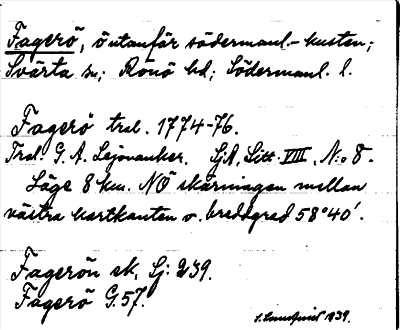 Fagerö, ö utanför södermanl.-kusten;
Svärta sn; Rönö hd; Södermanl. l.
Fagerö tral. 1774-76.
Tral. G. A. Lejonanker. SjA, Litt. VIII, N:o 8.
Läge 8 km. NÖ skärningen mellan
västra kartkanten o. breddgrad 58°40'.
Fagerön sk. Sj: 239.
Fagerö G. 57.
S. Lundqvist 1939.